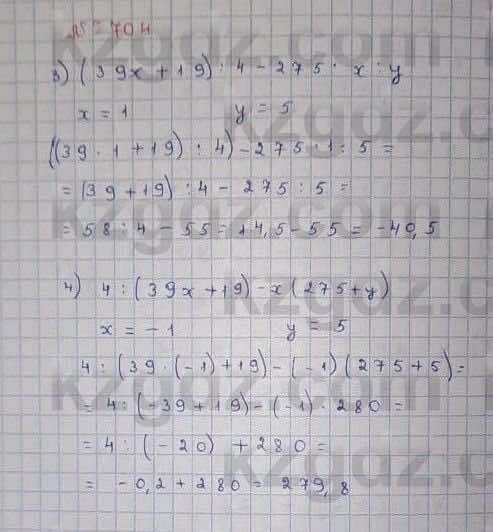 № 704
3) (39x + 19) : 4 - 275 · x : y
x = 1 y = 5
((39 · 1 + 19) : 4) - 275 · 1 : 5 =
= (39 + 19) : 4 - 275 : 5 =
= 58 : 4 - 55 = 14,5 - 55 = -40,5
4) 4 : (39x + 19) - x (275 + y)
x = -1 y = 5
4 : (39 · (-1) + 19) - (-1) (275 + 5) =
= 4 : (-39 + 19) - (-1) · 280 =
= 4 : (-20) + 280 =
= -0,2 + 280 = 279,8
kzgdz.com